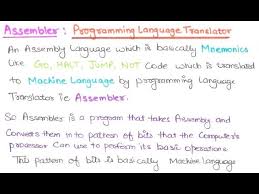 Assembler : Programming Language Translator
An Assembly Language which is basically Mnemonics
Like GO, HALT, JUMP, NOT Code which is translated
to Machine Language by programming Language
Translator i.e Assembler.
So Assembler is a program that takes Assembly and
Converts them into pattern of bits that the Computer's
processor Can use to perform its basic operations
This pattern of bits is basically Machine Language